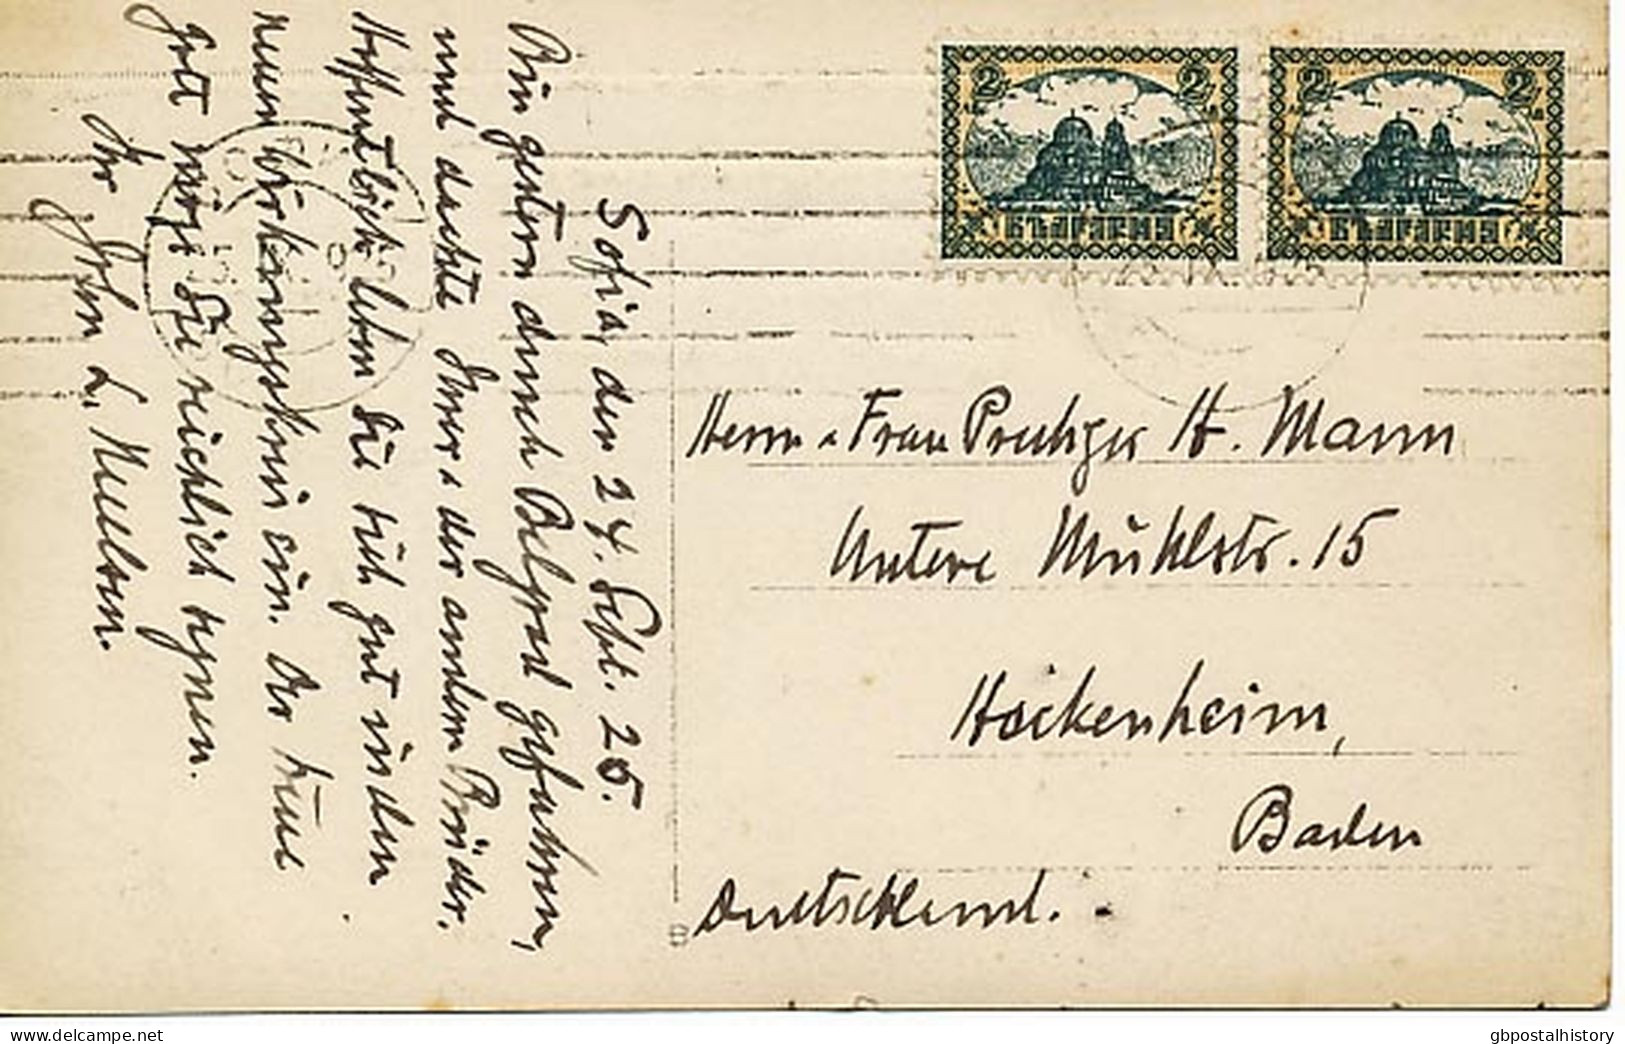 Sofia, den 24. Sept. 25.
Bin gestern durch Belgrad gefahren,
und dachte Ihrer u. der andern Brüder.
Hoffentlich leben Sie sich gut in den
neuen Wirkungskreis ein. Der treue
Gott möge Sie reichlich segnen.
Ihr John L.
2 2
БЪЛГАРИЯ
2 2
БЪЛГАРИЯ
Herrn u. Frau Prediger H. Mann
Untere Mühlstr. 15
Hockenheim,
Baden
Deutschland.
gbpostalhistory